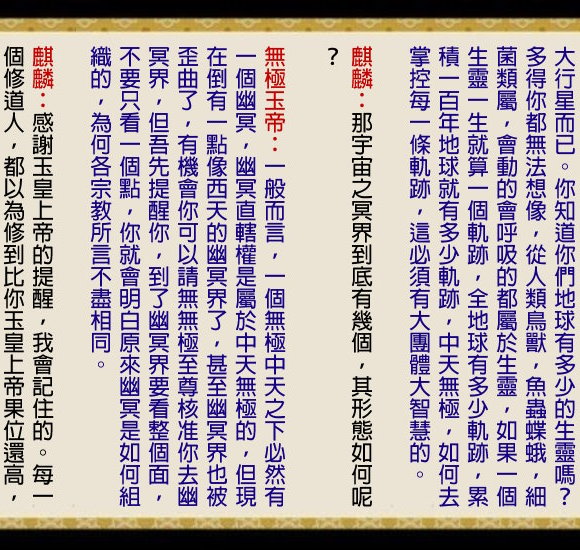 大行星而已。你知道你們地球有多少的生靈嗎？
多得你都無法想像，從人類鳥獸，魚蟲蝶蛾，細
菌類屬，會動的會呼吸的都屬於生靈，如果一個
生靈一生就算一個軌跡，全地球有多少軌跡，累
積一百年地球就有多少軌跡，中天無極，如何去
掌控每一條軌跡，這必須有大團體大智慧的。
麒麟：那宇宙之冥界到底有幾個，其形態如何呢
？
無極玉帝：一般而言，一個無極中天之下必然有
一個幽冥，幽冥直轄權是屬於中天無極的，但現
在倒有一點像西天的幽冥界了，甚至幽冥界也被
歪曲了，有機會你可以請無無極至尊核准你去幽
冥界，但吾先提醒你，到了幽冥界要看整個面，
不要只看一個點，你就會明白原來幽冥是如何組
織的，為何各宗教所言不盡相同。
麒麟：感謝玉皇上帝的提醒，我會記住的。每一
個修道人，都以為修到比你玉皇上帝果位還高，